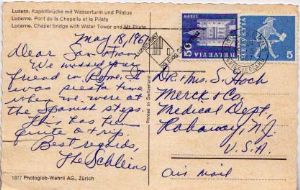 Luzern, Kapellbrücke mit Wasserturm und Pilatus
Lucerne, Pont de la Chapelle et le Pilate
Lucerne, Chapel Bridge with Water Tower and Mt. Pilate
May 18, 196
Dear San
We missed your
friend in Rome. It
was siesta time
when we were at
the Spanish steps.
This has been
quite a trip.
Best regards,
The Schleins
1017 Photoglob-Wehrli AG, Zürich
Printed in Switzerland
50
HELVETIA
HELVETIA
5
Dr. + Mrs. S. Hoch
Merck + Co.
Medical Dept.
Rahway, N.J.
U.S.A.
air mail